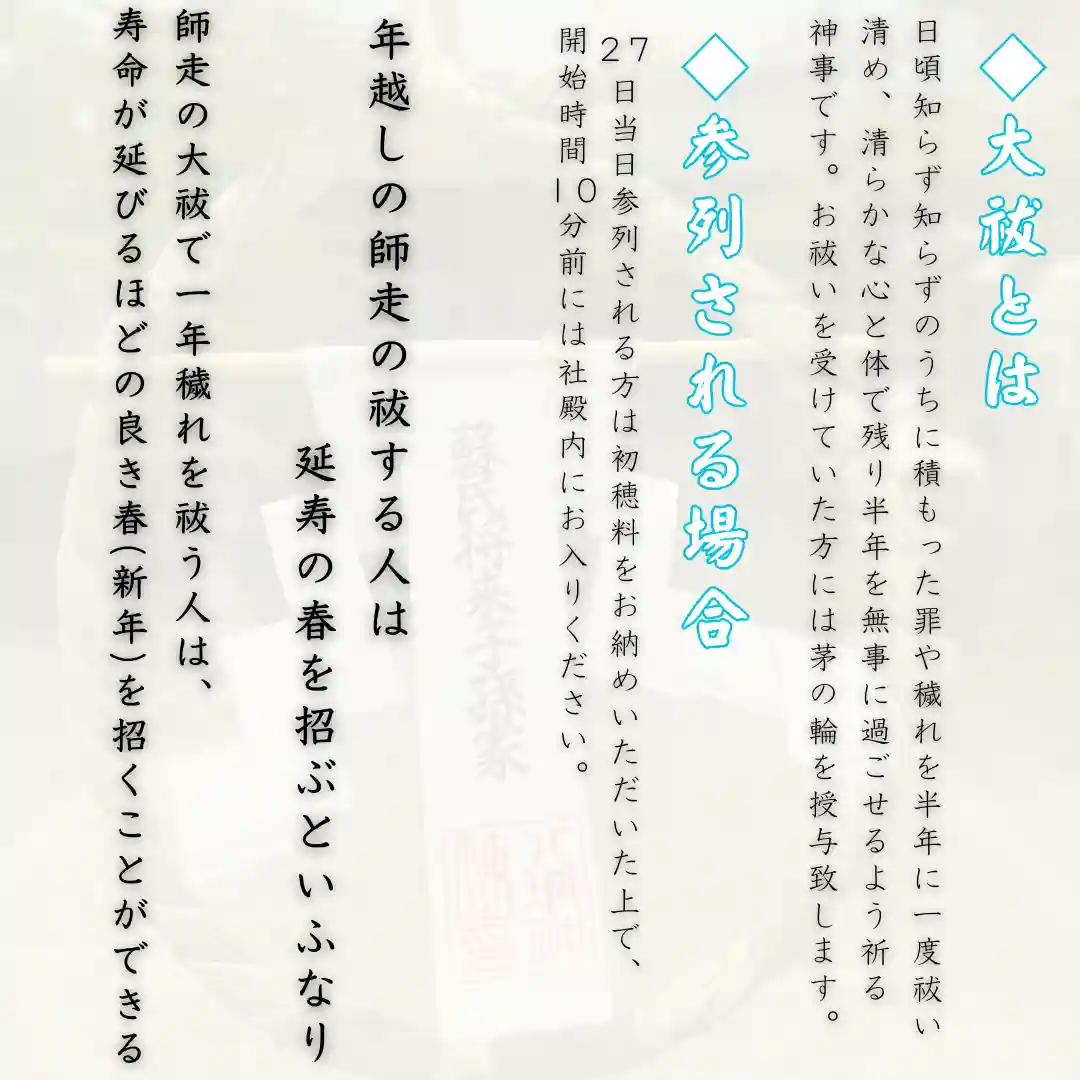 ◇大祓とは
日頃知らず知らずのうちに積もった罪や穢れを半年に一度祓い
清め、清らかな心と体で残り半年を無事に過ごせるよう祈る
神事です。お祓いを受けていた方には茅の輪を授与致します。
◇参列される場合
27日当日参列される方は初穂料をお納めいただいた上で、
開始時間10分前には社殿内にお入りください。
年越しの師走の祓する人は
延寿の春を招ぶといふなり
師走の大祓で一年穢れを祓う人は、
寿命が延びるほどの良き春(新年)を招くことができる
蘇民将来子孫家